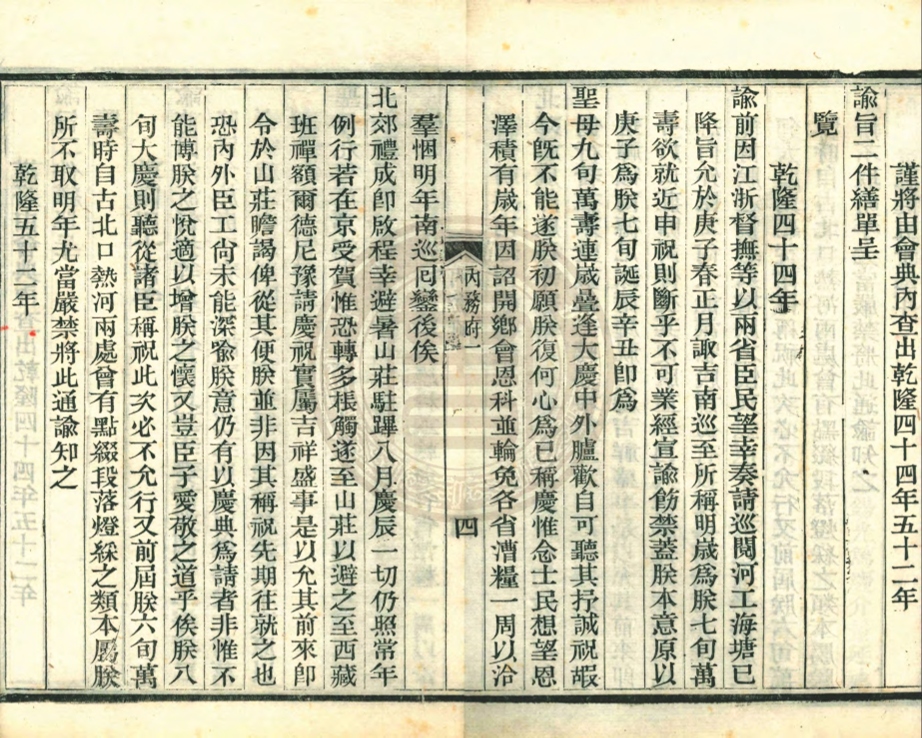 謹將由會典內查出乾隆四十四年五十二年
諭旨二件繕單呈
覽
乾隆四十四年
諭前因江浙督撫等以兩省臣民望幸奏請巡閱河工海塘已
降旨允於庚子春正月諏吉南巡至所稱明歲為朕七旬萬
壽欲就近申祝則斷乎不可業經宣諭飭禁蓋朕本意原以
庚子為朕七旬誕辰辛丑卽為
聖母九旬萬壽連歲疊逢大慶中外臚歡自可聽其抒誠祝嘏
今旣不能遂朕初願朕復何心為己稱慶惟念士民想望恩
澤積有歲年因詔開鄉會恩科並輪免各省漕糧一周以洽
內務府一
四
羣悃明年南巡囘鑾後俟
北郊禮成卽啟程幸避暑山莊駐蹕八月慶辰一切仍照常年
例行若在京受賀惟恐轉多棖觸遂至山莊以避之至西藏
班禪額爾德尼豫請慶祝實屬吉祥盛事是以允其前來卽
令於山莊瞻謁俾從其便朕並非因其稱祝先期往就之也
恐內外臣工尙未能深喻朕意仍有以慶典為請者非惟不
能博朕之悅適以增朕之懷又豈臣子愛敬之道乎俟朕八
旬大慶則聽從諸臣稱祝此次必不允行又前屆朕六旬萬
壽時自古北口熱河兩處曾有點綴段落燈綵之類本屬朕
所不取明年尤當嚴禁將此通諭知之
乾隆五十二年